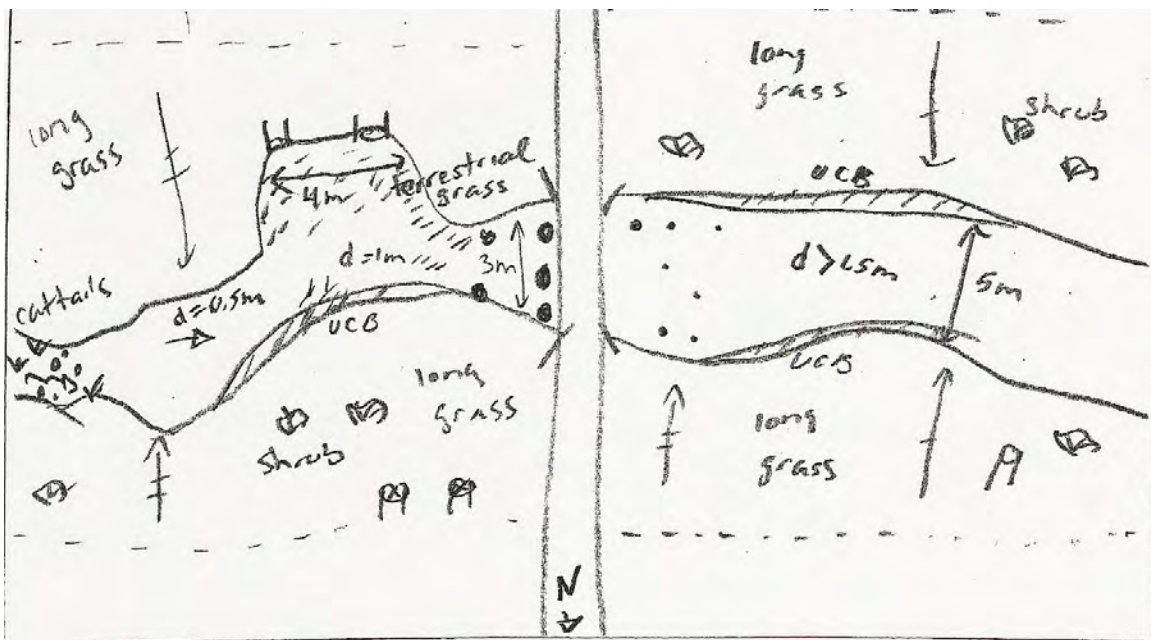 long
grass
4m
terrestrial
grass
cattails
d=0.5m
d=1m
3m
UCB
long
grass
shrub
long
grass
shrub
UCB
d>1.5m
5m
UCB
long
grass
N